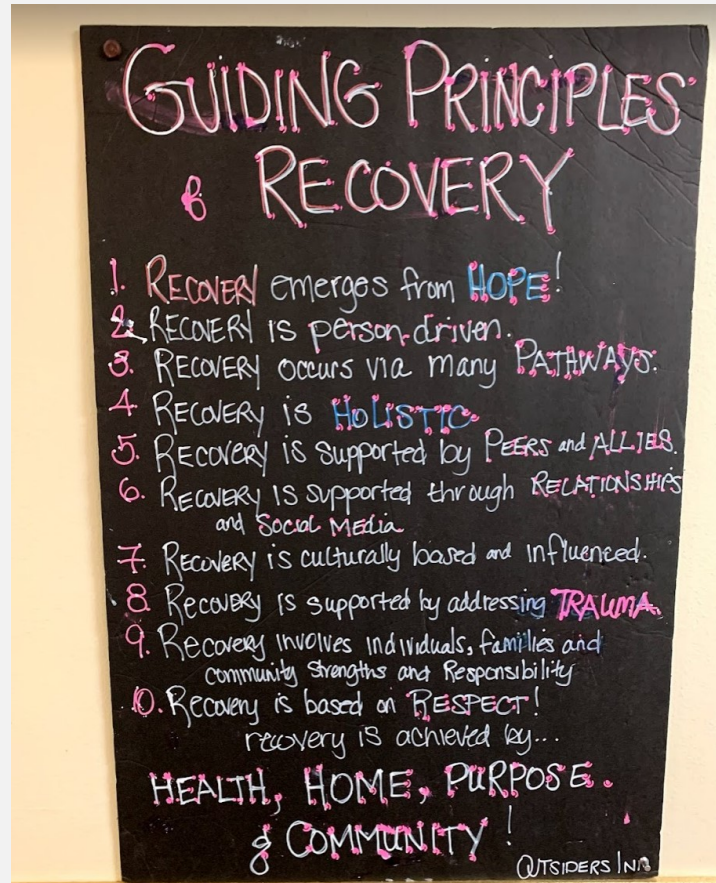 GUIDING PRINCIPLES
& RECOVERY
1. RECOVERY emerges from HOPE!
2. RECOVERY is person-driven.
3. RECOVERY occurs via many PATHWAYS.
4. RECOVERY is HOLISTIC
5. RECOVERY is supported by PEERS and ALLIES.
6. RECOVERY is supported through RELATIONSHIPS
and Social Media
7. RECOVERY is culturally based and influenced.
8. RECOVERY is supported by addressing TRAUMA.
9. Recovery involves individuals, families and
community strengths and Responsibility
10. Recovery is based on RESPECT!
recovery is achieved by...
HEALTH, HOME, PURPOSE.
& COMMUNITY!
OUTSIDERS INN